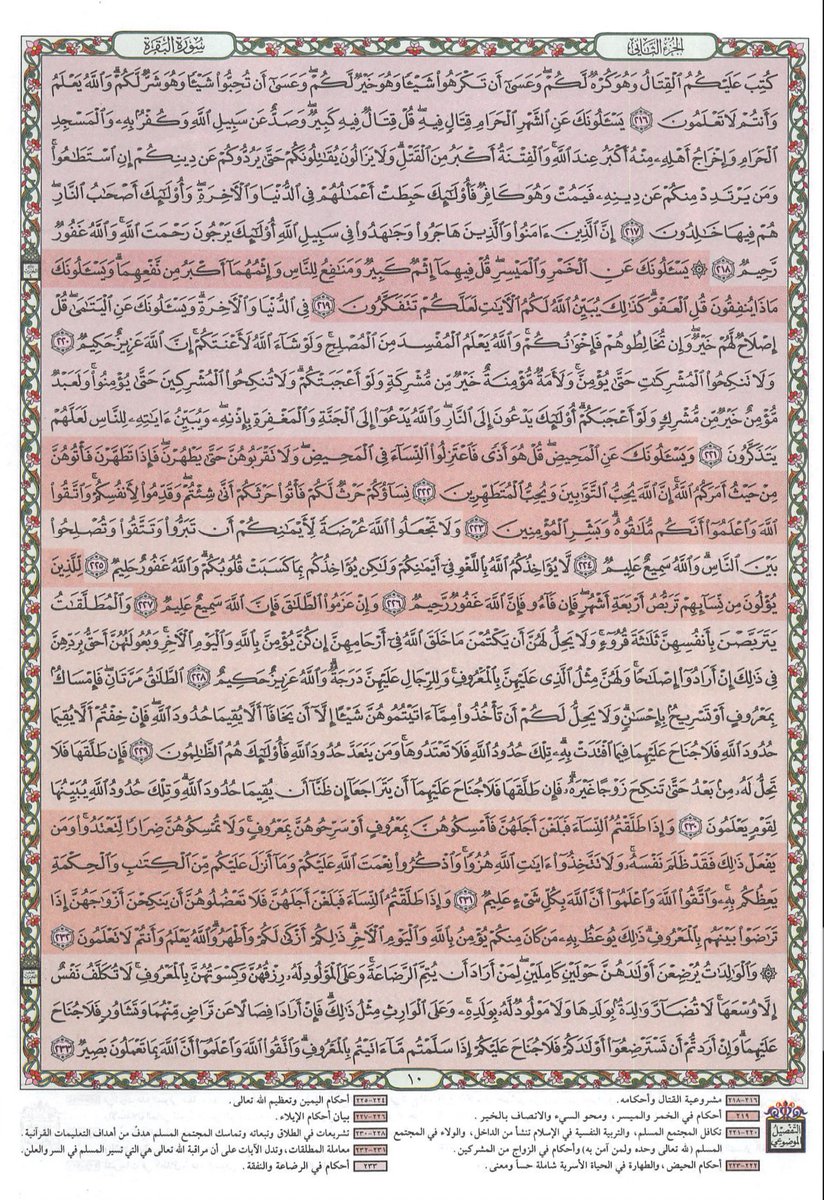 الجزء الثاني
سورة البقرة
كُتِبَ عَلَيْكُمُ ٱلْقِتَالُ وَهُوَ كُرْهٌ لَّكُمْ ۖ وَعَسَىٰٓ أَن تَكْرَهُوا۟ شَيْـًٔا وَهُوَ خَيْرٌ لَّكُمْ ۖ وَعَسَىٰٓ أَن تُحِبُّوا۟ شَيْـًٔا وَهُوَ شَرٌّ لَّكُمْ ۗ وَٱللَّهُ يَعْلَمُ
وَأَنتُمْ لَا تَعْلَمُونَ ٢١٦ يَسْـَٔلُونَكَ عَنِ ٱلشَّهْرِ ٱلْحَرَامِ قِتَالٍ فِيهِ ۖ قُلْ قِتَالٌ فِيهِ كَبِيرٌ ۖ وَصَدٌّ عَن سَبِيلِ ٱللَّهِ وَكُفْرٌۢ بِهِۦ وَٱلْمَسْجِدِ
ٱلْحَرَامِ وَإِخْرَاجُ أَهْلِهِۦ مِنْهُ أَكْبَرُ عِندَ ٱللَّهِ ۚ وَٱلْفِتْنَةُ أَكْبَرُ مِنَ ٱلْقَتْلِ ۗ وَلَا يَزَالُونَ يُقَـٰتِلُونَكُمْ حَتَّىٰ يَرُدُّوكُمْ عَن دِينِكُمْ إِنِ ٱسْتَطَـٰعُوا۟ ۚ
وَمَن يَرْتَدِدْ مِنكُمْ عَن دِينِهِۦ فَيَمُتْ وَهُوَ كَافِرٌ فَأُو۟لَـٰٓئِكَ حَبِطَتْ أَعْمَـٰلُهُمْ فِى ٱلدُّنْيَا وَٱلْـَٔاخِرَةِ ۖ وَأُو۟لَـٰٓئِكَ أَصْحَـٰبُ ٱلنَّارِ ۖ
هُمْ فِيهَا خَـٰلِدُونَ ٢١٧ إِنَّ ٱلَّذِينَ ءَامَنُوا۟ وَٱلَّذِينَ هَاجَرُوا۟ وَجَـٰهَدُوا۟ فِى سَبِيلِ ٱللَّهِ أُو۟لَـٰٓئِكَ يَرْجُونَ رَحْمَتَ ٱللَّهِ ۚ وَٱللَّهُ غَفُورٌ
رَّحِيمٌ ٢١٨ ۞ يَسْـَٔلُونَكَ عَنِ ٱلْخَمْرِ وَٱلْمَيْسِرِ ۖ قُلْ فِيهِمَآ إِثْمٌ كَبِيرٌ وَمَنَـٰفِعُ لِلنَّاسِ وَإِثْمُهُمَآ أَكْبَرُ مِن نَّفْعِهِمَا ۗ وَيَسْـَٔلُونَكَ
مَاذَا يُنفِقُونَ قُلِ ٱلْعَفْوَ ۗ كَذَٰلِكَ يُبَيِّنُ ٱللَّهُ لَكُمُ ٱلْـَٔايَـٰتِ لَعَلَّكُمْ تَتَفَكَّرُونَ ٢١٩ فِى ٱلدُّنْيَا وَٱلْـَٔاخِرَةِ ۗ وَيَسْـَٔلُونَكَ عَنِ ٱلْيَتَـٰمَىٰ ۖ قُلْ
إِصْلَاحٌ لَّهُمْ خَيْرٌ ۖ وَإِن تُخَالِطُوهُمْ فَإِخْوَٰنُكُمْ ۚ وَٱللَّهُ يَعْلَمُ ٱلْمُفْسِدَ مِنَ ٱلْمُصْلِحِ ۚ وَلَوْ شَآءَ ٱللَّهُ لَأَعْنَتَكُمْ ۚ إِنَّ ٱللَّهَ عَزِيزٌ حَكِيمٌ ٢٢٠
وَلَا تَنكِحُوا۟ ٱلْمُشْرِكَـٰتِ حَتَّىٰ يُؤْمِنَّ ۚ وَلَأَمَةٌ مُّؤْمِنَةٌ خَيْرٌ مِّن مُّشْرِكَةٍ وَلَوْ أَعْجَبَتْكُمْ ۗ وَلَا تُنكِحُوا۟ ٱلْمُشْرِكِينَ حَتَّىٰ يُؤْمِنُوا۟ ۚ وَلَعَبْدٌ
مُّؤْمِنٌ خَيْرٌ مِّن مُّشْرِكٍ وَلَوْ أَعْجَبَكُمْ ۗ أُو۟لَـٰٓئِكَ يَدْعُونَ إِلَى ٱلنَّارِ ۖ وَٱللَّهُ يَدْعُوٓا۟ إِلَى ٱلْجَنَّةِ وَٱلْمَغْفِرَةِ بِإِذْنِهِۦ ۖ وَيُبَيِّنُ ءَايَـٰتِهِۦ لِلنَّاسِ لَعَلَّهُمْ
يَتَذَكَّرُونَ ٢٢١ وَيَسْـَٔلُونَكَ عَنِ ٱلْمَحِيضِ ۖ قُلْ هُوَ أَذًى فَٱعْتَزِلُوا۟ ٱلنِّسَآءَ فِى ٱلْمَحِيضِ ۖ وَلَا تَقْرَبُوهُنَّ حَتَّىٰ يَطْهُرْنَ ۖ فَإِذَا تَطَهَّرْنَ فَأْتُوهُنَّ
مِنْ حَيْثُ أَمَرَكُمُ ٱللَّهُ ۚ إِنَّ ٱللَّهَ يُحِبُّ ٱلتَّوَّٰبِينَ وَيُحِبُّ ٱلْمُتَطَهِّرِينَ ٢٢٢ نِسَآؤُكُمْ حَرْثٌ لَّكُمْ فَأْتُوا۟ حَرْثَكُمْ أَنَّىٰ شِئْتُمْ ۖ وَقَدِّمُوا۟ لِأَنفُسِكُمْ ۚ وَٱتَّقُوا۟
ٱللَّهَ وَٱعْلَمُوٓا۟ أَنَّكُم مُّلَـٰقُوهُ ۗ وَبَشِّرِ ٱلْمُؤْمِنِينَ ٢٢٣ وَلَا تَجْعَلُوا۟ ٱللَّهَ عُرْضَةً لِّأَيْمَـٰنِكُمْ أَن تَبَرُّوا۟ وَتَتَّقُوا۟ وَتُصْلِحُوا۟
بَيْنَ ٱلنَّاسِ ۗ وَٱللَّهُ سَمِيعٌ عَلِيمٌ ٢٢٤ لَّا يُؤَاخِذُكُمُ ٱللَّهُ بِٱللَّغْوِ فِىٓ أَيْمَـٰنِكُمْ وَلَـٰكِن يُؤَاخِذُكُم بِمَا كَسَبَتْ قُلُوبُكُمْ ۗ وَٱللَّهُ غَفُورٌ حَلِيمٌ ٢٢٥ لِّلَّذِينَ
يُؤْلُونَ مِن نِّسَآئِهِمْ تَرَبُّصُ أَرْبَعَةِ أَشْهُرٍ ۖ فَإِن فَآءُو فَإِنَّ ٱللَّهَ غَفُورٌ رَّحِيمٌ ٢٢٦ وَإِنْ عَزَمُوا۟ ٱلطَّلَـٰقَ فَإِنَّ ٱللَّهَ سَمِيعٌ عَلِيمٌ ٢٢٧ وَٱلْمُطَلَّقَـٰتُ
يَتَرَبَّصْنَ بِأَنفُسِهِنَّ ثَلَـٰثَةَ قُرُوٓءٍ ۚ وَلَا يَحِلُّ لَهُنَّ أَن يَكْتُمْنَ مَا خَلَقَ ٱللَّهُ فِىٓ أَرْحَامِهِنَّ إِن كُنَّ يُؤْمِنَّ بِٱللَّهِ وَٱلْيَوْمِ ٱلْـَٔاخِرِ ۚ وَبُعُولَتُهُنَّ أَحَقُّ بِرَدِّهِنَّ
فِى ذَٰلِكَ إِنْ أَرَادُوٓا۟ إِصْلَـٰحًا ۚ وَلَهُنَّ مِثْلُ ٱلَّذِى عَلَيْهِنَّ بِٱلْمَعْرُوفِ ۚ وَلِلرِّجَالِ عَلَيْهِنَّ دَرَجَةٌ ۗ وَٱللَّهُ عَزِيزٌ حَكِيمٌ ٢٢٨ ٱلطَّلَـٰقُ مَرَّتَانِ ۖ فَإِمْسَاكٌۢ
بِمَعْرُوفٍ أَوْ تَسْرِيحٌۢ بِإِحْسَـٰنٍ ۗ وَلَا يَحِلُّ لَكُمْ أَن تَأْخُذُوا۟ مِمَّآ ءَاتَيْتُمُوهُنَّ شَيْـًٔا إِلَّآ أَن يَخَافَآ أَلَّا يُقِيمَا حُدُودَ ٱللَّهِ ۖ فَإِنْ خِفْتُمْ أَلَّا يُقِيمَا
حُدُودَ ٱللَّهِ فَلَا جُنَاحَ عَلَيْهِمَا فِيمَا ٱفْتَدَتْ بِهِۦ ۗ تِلْكَ حُدُودُ ٱللَّهِ فَلَا تَعْتَدُوهَا ۚ وَمَن يَتَعَدَّ حُدُودَ ٱللَّهِ فَأُو۟لَـٰٓئِكَ هُمُ ٱلظَّـٰلِمُونَ ٢٢٩ فَإِن طَلَّقَهَا فَلَا
تَحِلُّ لَهُۥ مِنۢ بَعْدُ حَتَّىٰ تَنكِحَ زَوْجًا غَيْرَهُۥ ۗ فَإِن طَلَّقَهَا فَلَا جُنَاحَ عَلَيْهِمَآ أَن يَتَرَاجَعَآ إِن ظَنَّآ أَن يُقِيمَا حُدُودَ ٱللَّهِ ۗ وَتِلْكَ حُدُودُ ٱللَّهِ يُبَيِّنُهَا
لِقَوْمٍ يَعْلَمُونَ ٢٣٠ وَإِذَا طَلَّقْتُمُ ٱلنِّسَآءَ فَبَلَغْنَ أَجَلَهُنَّ فَأَمْسِكُوهُنَّ بِمَعْرُوفٍ أَوْ سَرِّحُوهُنَّ بِمَعْرُوفٍ ۚ وَلَا تُمْسِكُوهُنَّ ضِرَارًا لِّتَعْتَدُوا۟ ۚ وَمَن
يَفْعَلْ ذَٰلِكَ فَقَدْ ظَلَمَ نَفْسَهُۥ ۚ وَلَا تَتَّخِذُوٓا۟ ءَايَـٰتِ ٱللَّهِ هُزُوًا ۚ وَٱذْكُرُوا۟ نِعْمَتَ ٱللَّهِ عَلَيْكُمْ وَمَآ أَنزَلَ عَلَيْكُم مِّنَ ٱلْكِتَـٰبِ وَٱلْحِكْمَةِ
يَعِظُكُم بِهِۦ ۚ وَٱتَّقُوا۟ ٱللَّهَ وَٱعْلَمُوٓا۟ أَنَّ ٱللَّهَ بِكُلِّ شَىْءٍ عَلِيمٌ ٢٣١ وَإِذَا طَلَّقْتُمُ ٱلنِّسَآءَ فَبَلَغْنَ أَجَلَهُنَّ فَلَا تَعْضُلُوهُنَّ أَن يَنكِحْنَ أَزْوَٰجَهُنَّ إِذَا
تَرَٰضَوْا۟ بَيْنَهُم بِٱلْمَعْرُوفِ ۗ ذَٰلِكَ يُوعَظُ بِهِۦ مَن كَانَ مِنكُمْ يُؤْمِنُ بِٱللَّهِ وَٱلْيَوْمِ ٱلْـَٔاخِرِ ۗ ذَٰلِكُمْ أَزْكَىٰ لَكُمْ وَأَطْهَرُ ۗ وَٱللَّهُ يَعْلَمُ وَأَنتُمْ لَا تَعْلَمُونَ ٢٣٢
۞ وَٱلْوَٰلِدَٰتُ يُرْضِعْنَ أَوْلَـٰدَهُنَّ حَوْلَيْنِ كَامِلَيْنِ ۖ لِمَنْ أَرَادَ أَن يُتِمَّ ٱلرَّضَاعَةَ ۚ وَعَلَى ٱلْمَوْلُودِ لَهُۥ رِزْقُهُنَّ وَكِسْوَتُهُنَّ بِٱلْمَعْرُوفِ ۚ لَا تُكَلَّفُ نَفْسٌ
إِلَّا وُسْعَهَا ۚ لَا تُضَآرَّ وَٰلِدَةٌۢ بِوَلَدِهَا وَلَا مَوْلُودٌ لَّهُۥ بِوَلَدِهِۦ ۚ وَعَلَى ٱلْوَارِثِ مِثْلُ ذَٰلِكَ ۗ فَإِنْ أَرَادَا فِصَالًا عَن تَرَاضٍ مِّنْهُمَا وَتَشَاوُرٍ فَلَا جُنَاحَ
عَلَيْهِمَا ۗ وَإِنْ أَرَدتُّمْ أَن تَسْتَرْضِعُوٓا۟ أَوْلَـٰدَكُمْ فَلَا جُنَاحَ عَلَيْكُمْ إِذَا سَلَّمْتُم مَّآ ءَاتَيْتُم بِٱلْمَعْرُوفِ ۗ وَٱتَّقُوا۟ ٱللَّهَ وَٱعْلَمُوٓا۟ أَنَّ ٱللَّهَ بِمَا تَعْمَلُونَ بَصِيرٌ ٢٣٣
١٠
التفصيل الموضوعي
٢١٦-٢١٨ مشروعية القتال وأحكامه .
٢١٩ أحكام في الخمر والميسر، ومحو السيء والاتصاف بالخير .
٢٢٠-٢٢١ تكافل المجتمع المسلم، والتربية النفسية في الإسلام تنشأ من الداخل، والولاء في المجتمع
المسلم (لله تعالى وحده ولمن آمن به) وأحكام في الزواج من المشركين .
٢٢٢-٢٢٣ أحكام الحيض، والطهارة في الحياة الأسرية شاملة حساً ومعنى .
٢٢٤-٢٢٥ أحكام اليمين وتعظيم الله تعالى .
٢٢٦-٢٢٧ بيان أحكام الإيلاء .
٢٢٨-٢٣٠ تشريعات في الطلاق وتبعاته وتماسك المجتمع المسلم هدفٌ من أهداف التعليمات القرآنية .
٢٣١-٢٣٢ معاملة المطلقات، وتدل الآيات على أن مراقبة الله تعالى هي التي تسير المسلم في السر والعلن .
٢٣٣ أحكام في الرضاعة والنفقة .